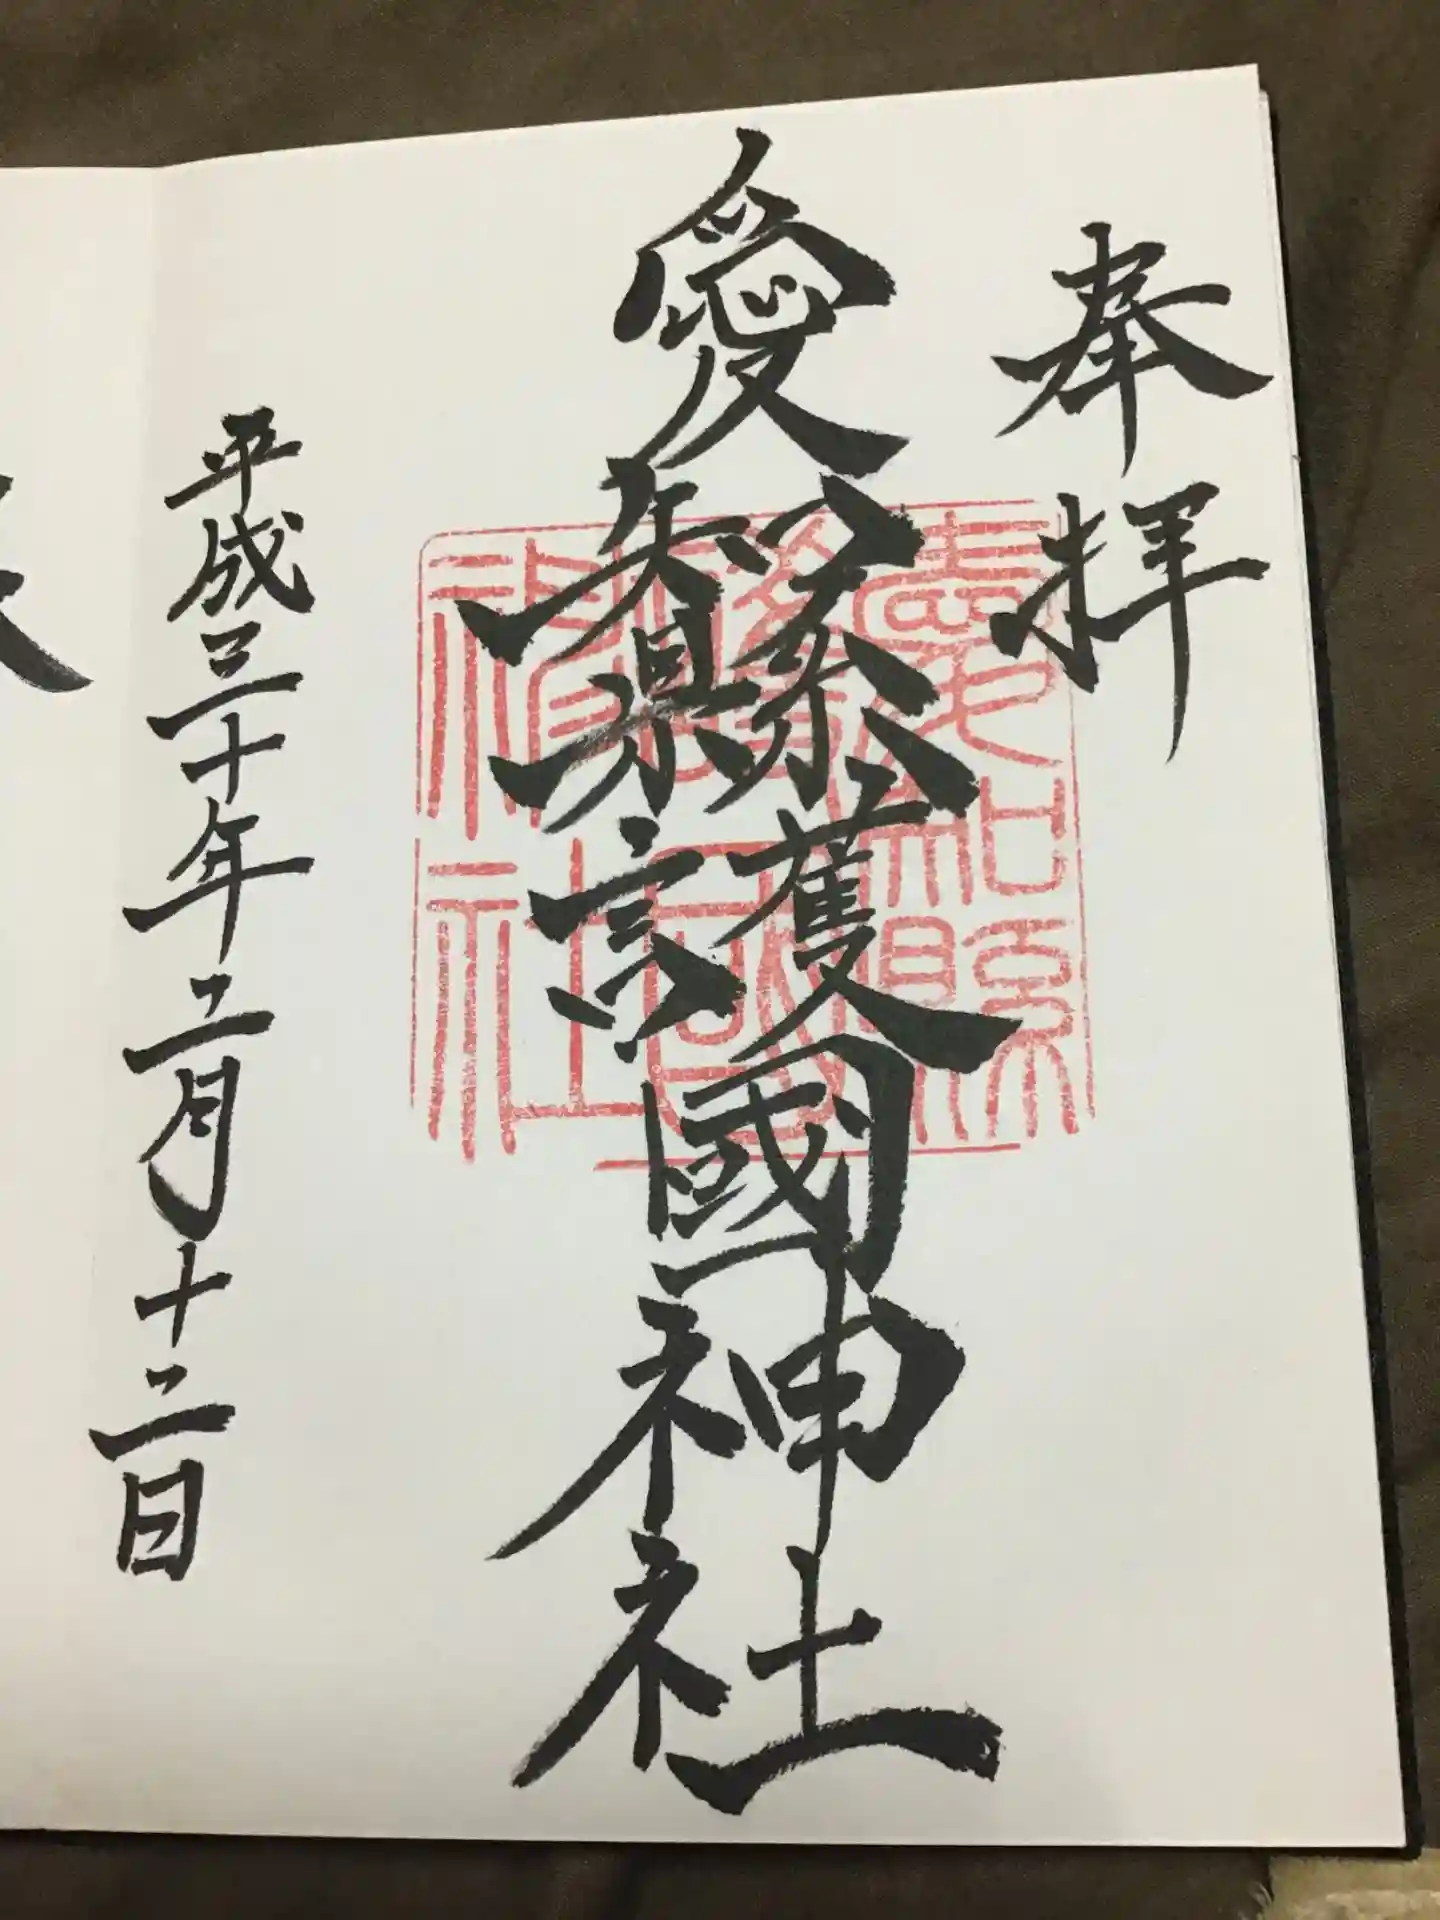 奉拝
愛知縣護國神社
愛知縣護國神社
平成三十年二月十二日